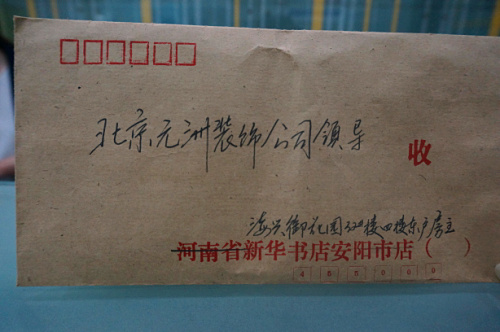 北京元洲装饰公司领导 收
海兴御花园 楼四楼东户房主
河南省新华书店安阳市店（ ）
455000